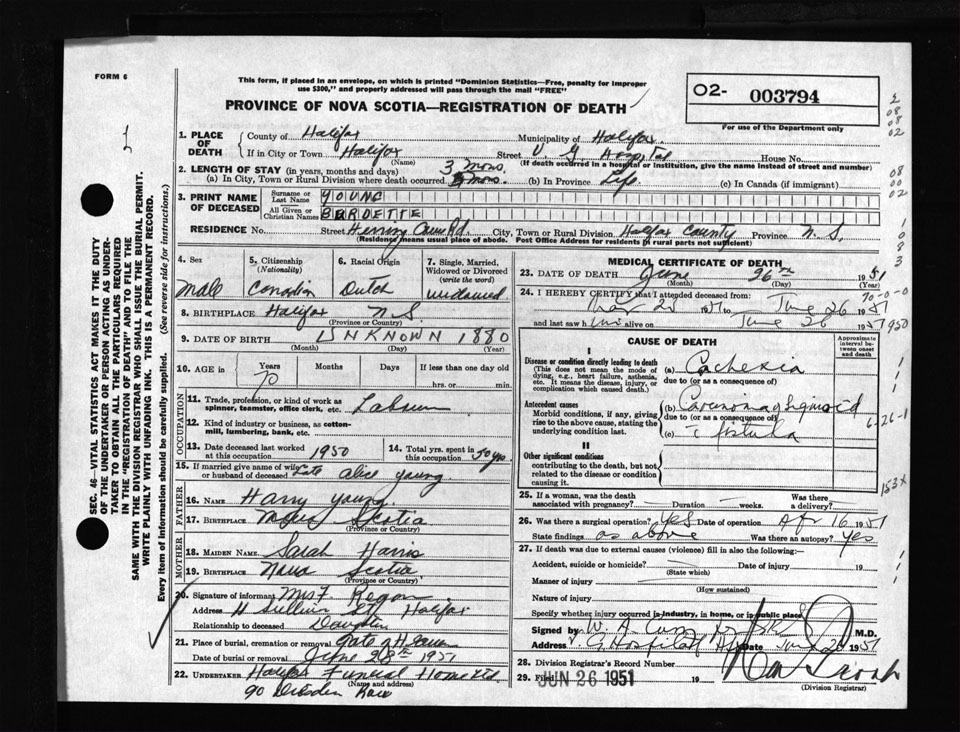 FORM 6
This form, if placed in an envelope, on which is printed "Dominion Statistics—Free, penalty for improper
use $300," and properly addressed will pass through the mail "FREE"
PROVINCE OF NOVA SCOTIA—REGISTRATION OF DEATH
02- 003794
For use of the Department only
SEC. 46—VITAL STATISTICS ACT MAKES IT THE DUTY
OF THE UNDERTAKER OR PERSON ACTING AS UNDER-
TAKER TO OBTAIN ALL THE PARTICULARS REQUIRED
IN THE "REGISTRATION OF DEATH" AND TO FILE THE
SAME WITH THE DIVISION REGISTRAR WHO SHALL ISSUE THE BURIAL PERMIT.
WRITE PLAINLY WITH UNFADING INK. THIS IS A PERMANENT RECORD.
Every item of information should be carefully supplied. (See reverse side for instructions.)
1. PLACE OF DEATH
County of Halifax Municipality of Halifax
If in City or Town Halifax Street V G Hospital House No.
(Name) (If death occurred in a hospital or institution, give the name instead of street and number)
2. LENGTH OF STAY (in years, months and days) 3 mons.
(a) In City, Town or Rural Division where death occurred (b) In Province Life (c) In Canada (if immigrant)
3. PRINT NAME OF DECEASED
Surname or Last Name YOUNG
All Given or Christian Names BURDETTE
RESIDENCE No. Street Herring Cove Rd. City, Town or Rural Division Halifax County Province N.S.
(Residence means usual place of abode. Post Office Address for residents in rural parts not sufficient)
4. Sex male
5. Citizenship (Nationality) Canadian
6. Racial Origin Dutch
7. Single, Married, Widowed or Divorced (write the word) widowed
8. BIRTHPLACE Halifax N.S.
(Province or Country)
9. DATE OF BIRTH UNKNOWN 1880
(Month) (Day) (Year)
10. AGE in Years 70 Months Days If less than one day
hrs. or min.
OCCUPATION
11. Trade, profession, or kind of work as
spinner, teamster, office clerk, etc. Labourer
12. Kind of industry or business, as cotton-
mill, lumbering, bank, etc.
13. Date deceased last worked at this occupation 1950
14. Total yrs. spent in this occupation 50 yrs.
15. If married give name of wife or husband of deceased Late Alice Young
FATHER
16. NAME Harry Young
17. BIRTHPLACE Nova Scotia
(Province or Country)
MOTHER
18. MAIDEN NAME Sarah Harris
19. BIRTHPLACE Nova Scotia
(Province or Country)
20. Signature of informant Mrs F Regan
Address 11 Sullivan St Halifax
Relationship to deceased Daughter
21. Place of burial, cremation or removal Gate of Heaven
Date of burial or removal June 28th 1951
22. UNDERTAKER Halifax Funeral Home Ltd.
(Name and address)
90 Dresden Row
MEDICAL CERTIFICATE OF DEATH
23. DATE OF DEATH June 26th 1951
(Month) (Day)
24. I HEREBY CERTIFY that I attended deceased from:
1951 to June 26 1951
and last saw him alive on June 26 1951
70-0-0
950
CAUSE OF DEATH
Approximate interval between onset and death
I
Disease or condition directly leading to death
(This does not mean the mode of
dying, e.g., heart failure, asthenia,
etc. It means the disease, injury, or
complication which caused death.)
(a) Cachexia
due to (or as a consequence of)
Antecedent causes
Morbid conditions, if any, giving
rise to the above cause, stating the
underlying condition last.
(b) Carcinoma of Sigmoid
due to (or as a consequence of)
(c) c fistula
6-26-1
II
Other significant conditions
contributing to the death, but not
related to the disease or condition
causing it.
153x
25. If a woman, was the death associated with pregnancy? Duration weeks Was there a delivery?
26. Was there a surgical operation? Yes Date of operation Apr 16 1951
State findings as above Was there an autopsy? Yes
27. If death was due to external causes (violence) fill in also the following:—
Accident, suicide or homicide? Date of injury 19
(State which)
Manner of injury
(How sustained)
Nature of injury
Specify whether injury occurred in industry, in home, or in public place
Signed by W. A. M.D.
Address V. G. Hospital Date June 26 1951
28. Division Registrar's Record Number
29. Filed JUN 26 1951 19
(Division Registrar)